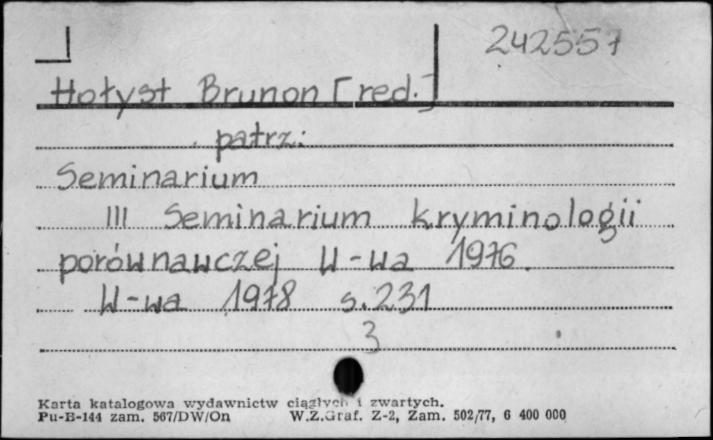 242557
Hołyst Brunon [red.]
patrz:
Seminarium
III Seminarium kryminologii
porównawczej W-wa 1976.
W-wa 1978 s. 231
3
Karta katalogowa wydawnictw ciągłych i zwartych.
Pu-B-144 zam. 567/DW/On W.Z.Graf. Z-2, Zam. 502/77, 6 400 000